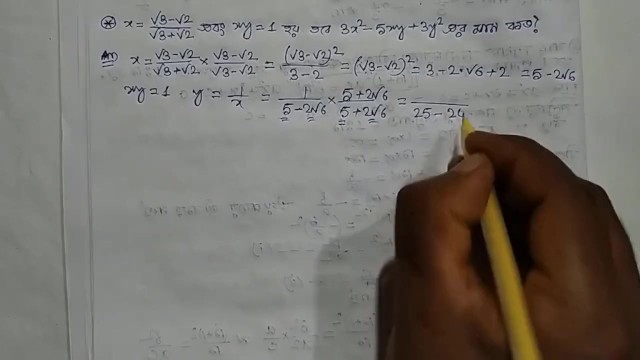 * x = (√3-√2)/(√3+√2) এবং xy = 1 হয় তবে 3x² - 5xy + 3y² এর মান কত?
Ans x = (√3-√2)/(√3+√2) × (√3-√2)/(√3-√2) = (√3-√2)²/(3-2) = (√3-√2)² = 3-2·√6+2 = 5-2√6
xy=1 y = 1/x = 1/(5-2√6) × (5+2√6)/(5+2√6) = /(25-24